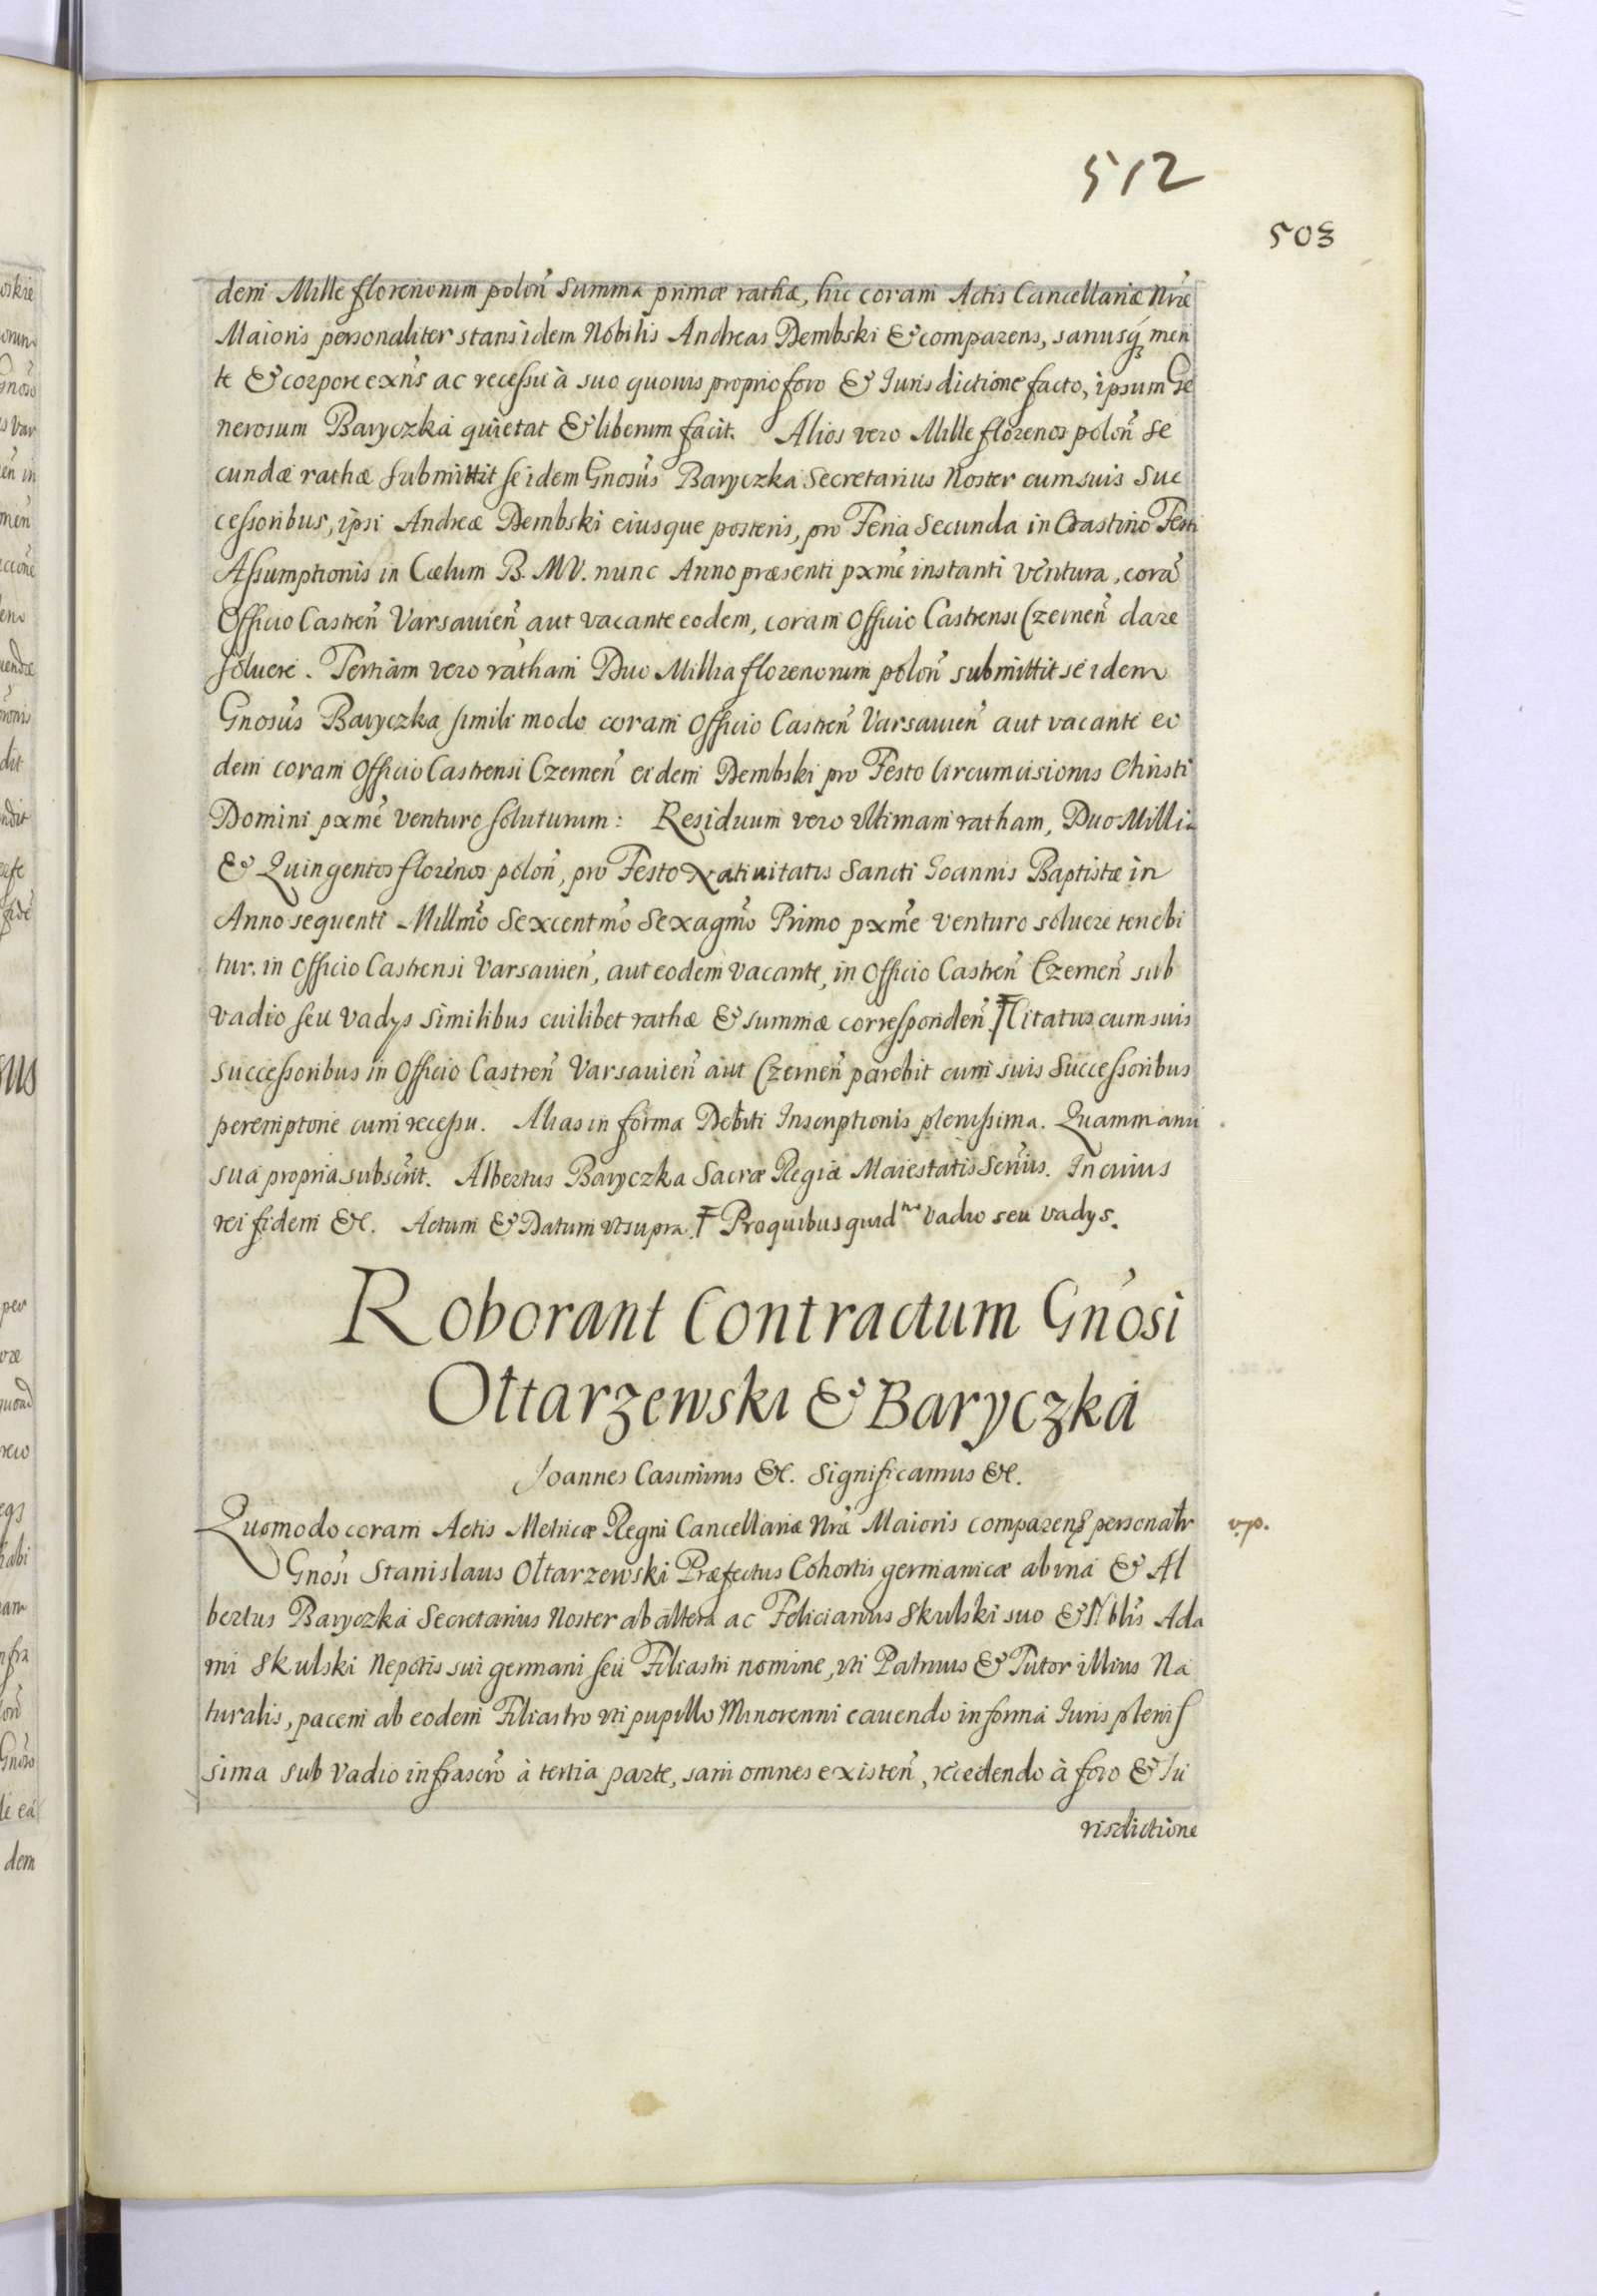 512
503
dem Mille florenorum polon̄ Summa primæ rathæ, hic coram Actis Cancellariæ Nr̄æ
Maioris personaliter stans idem Nobilis Andreas Dembski & comparens, sanusq̨ men
te & corpore exn̄s ac recessu à suo quouis proprio foro & Iurisdictione facto, ipsum Ge
nerosum Baryczka quietat & liberum facit. Alios vero Mille florenos polon̄ se
cundæ rathæ submittit se idem Gnosūs Baryczka Secretarius Noster cum suis Suc
cessoribus, ipsi Andreæ Dembski eiusque posteris, pro Feria Secunda in Crastino Festi
Assumptionis in Cælum B. M V. nunc Anno præsenti pxmē instanti ventura, corā
Officio Castren̄ Varsauien̄ aut vacante eodem, coram Officio Castrensi Czernen̄ dare
soluere. Tertiam vero ratham Duo Millia florenorum polon̄ submittit se idem
Gnosūs Baryczka simili modo coram Officio Castren̄ Varsauien̄ aut vacante eo
dem coram Officio Castrensi Czernen̄ eidem Dembski pro Festo Circumcisionis Christi
Domini pxmē venturo soluturum: Residuum vero vltimam ratham, Duo Millia
& Quingentos florenos polon̄, pro Festo Natiuitatis Sancti Ioannis Baptistæ in
Anno sequenti Millm̄o Sexcentm̄o Sexagm̄o Primo pxm̄e venturo soluere tenebi
tur. in Officio Castrensi Varsauien̄, aut eodem vacante, in Officio Castren̄ Czernen̄ sub
vadio seu vadys similibus cuilibet rathæ & summæ corresponden̄. ☨ Citatus cum suis
successoribus in Officio Castren̄ Varsauien̄ aut Czernen̄ parebit cum suis Successoribus
peremptorie cum recessu. Alias in forma Debiti Inscriptionis plenissima. Quam manu
sua propria subscr̄it. Albertus Baryczka Sacræ Regiæ Maiestatis Serūus. In cuius
rei fidem &c. Actum & Datum vt supra. ☨ Pro quibus quid̄m vadio seu vadys.
Roborant Contractum Gn̄osi
Ołtarzewski & Baryczka
Ioannes Casimirus &c. Significamus &c.
Quomodo coram Actis Metricæ Regni Cancellariæ Nr̄æ Maioris comparen̨s personalr̄
v.p.
Gnosī Stanislaus Ołtarzewski Præfectus Cohortis germanicæ ab vna & Al
bertus Baryczka Secretarius Noster ab altera ac Felicianus Skulski suo & Nblīs Ada
mi Skulski Nepotis sui germani seu Filiastri nomine, vti Patruus & Tutor illius Na
turalis, pacem ab eodem Filiastro vti pupillo Minorenni cauendo in forma Iuris plenis
sima sub vadio infrascrō à tertia parte, sani omnes existen̄, recedendo à foro & Iu
risdictione